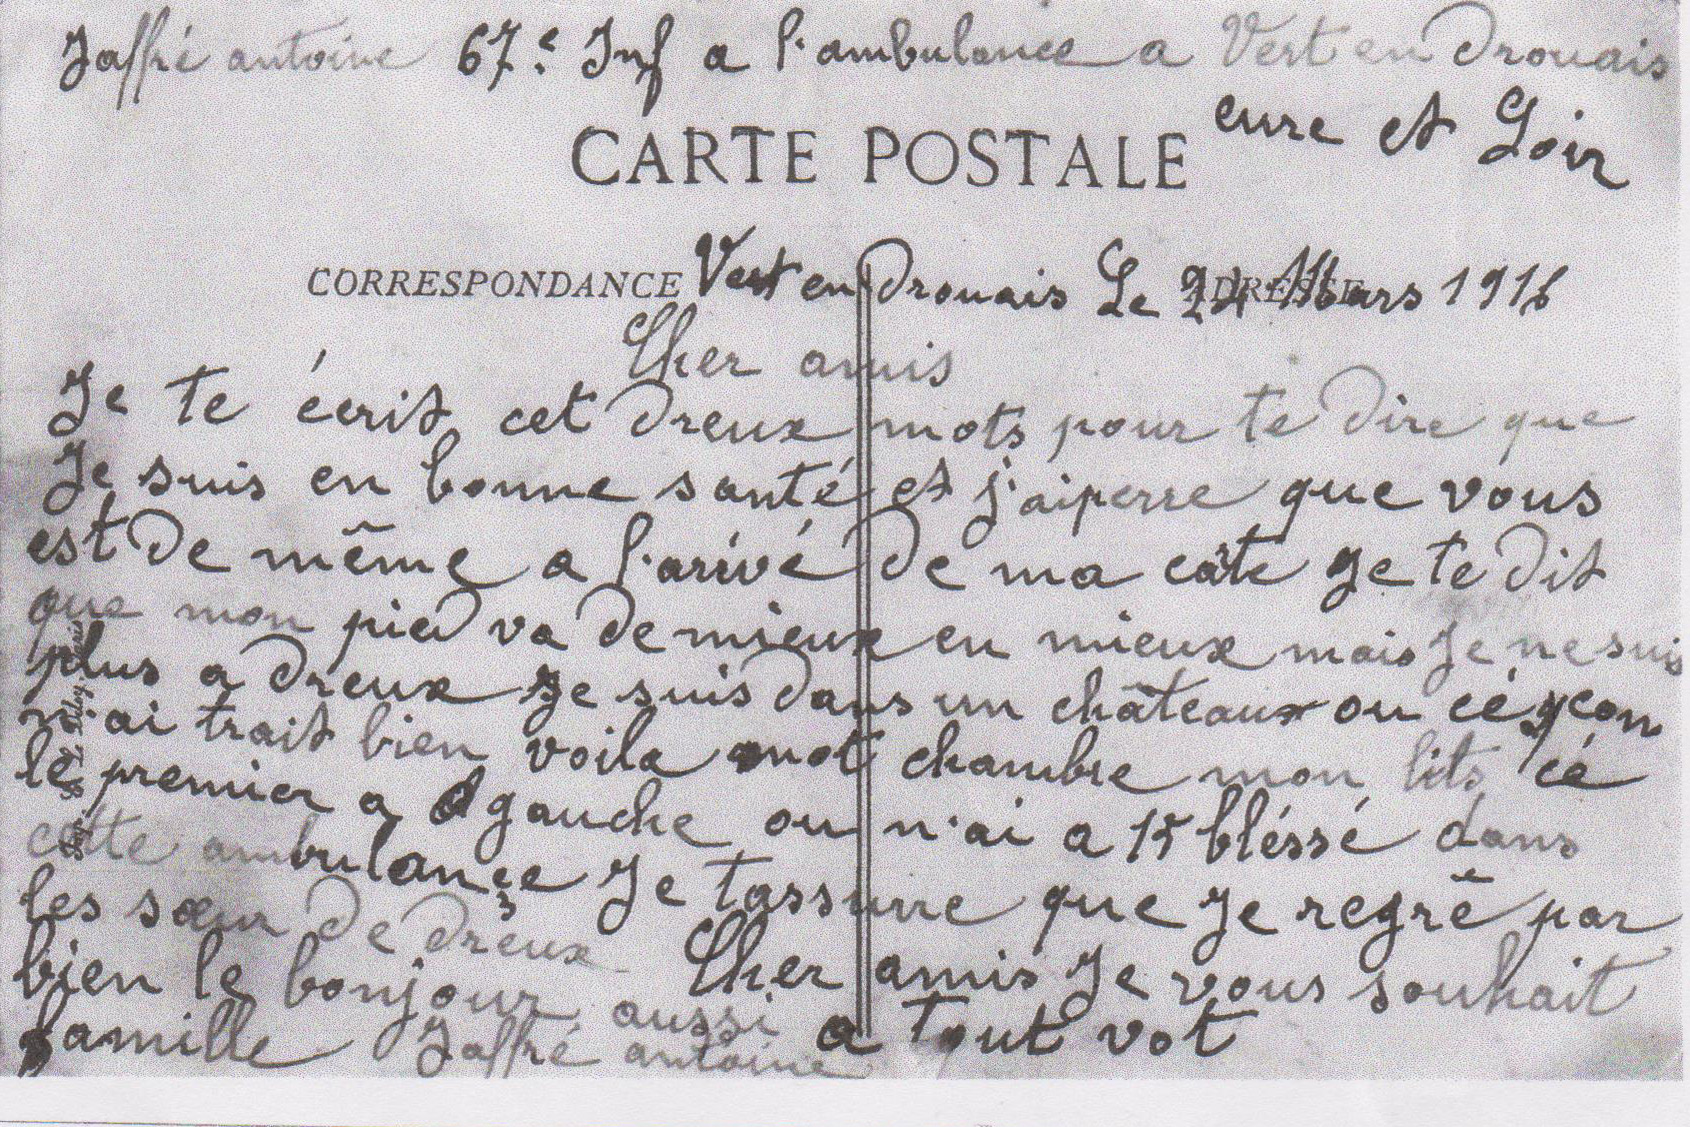 Jaffré antoine 67.e Inf a l'ambulance a Vert en Drouais
eure et Loir
CARTE POSTALE
CORRESPONDANCE
ADRESSE
Vert en Drouais Le 24 Mars 1916
Cher amis
Je te écrit cet Dreux mots pour te Dire que
Je suis en bonne santé et j'aiperre que vous
est De même a l'arivé De ma carte Je te Dit
que mon pied va De mieux en mieux mais Je ne suis
plus a Dreux Je suis Dans un châteaux ou cé qeon
n'ai trait bien voila mot chambre mon lits cé
le premier a gauche ou n'ai a 15 bléssé dans
cette ambulance Je tassure que Je regrê par
les sœur De dreux Cher amis Je vous souhait
bien le bonjour aussi a tout vot
famille Jaffré antoine